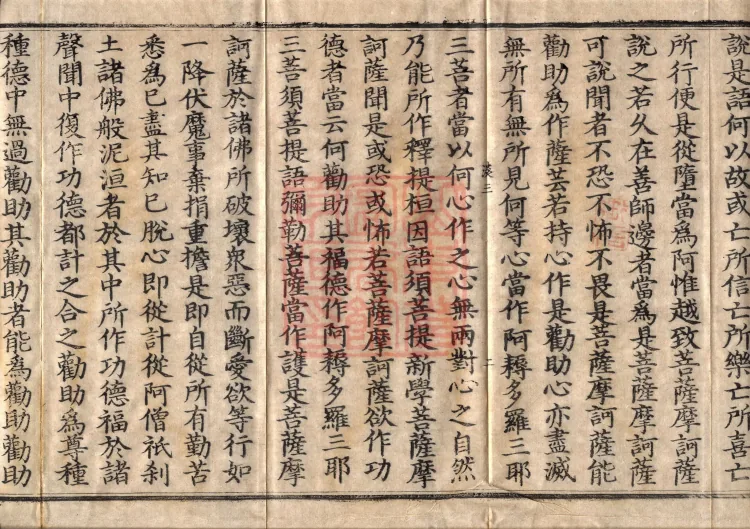 說是語何以故或亡所信亡所樂亡所喜亡
所行便是從墮當爲阿惟越致菩薩摩訶薩
說之若久在善師邊者當爲是菩薩摩訶薩
可說聞者不恐不怖不畏是菩薩摩訶薩能
勸助爲作薩芸若持心作是勸助心亦盡滅
無所有無所見何等心當作阿耨多羅三耶
三菩者當以何心作之心無兩對心之自然
乃能所作釋提桓因語須菩提新學菩薩摩
訶薩聞是或恐或怖若菩薩摩訶薩欲作功
德者當云何勸助其福德作阿耨多羅三耶
三菩須菩提語彌勒菩薩當作護是菩薩摩
訶薩於諸佛所破壞衆惡而斷愛欲等行如
一降伏魔事棄捐重擔是即自從所有勤苦
悉爲已盡其知已脫心即從計從阿僧祇刹
土諸佛般泥洹者於其中所作功德福於諸
聲聞中復作功德都計之合之勸助爲尊種
種德中無過勸助其勸助者能爲勸助勸助